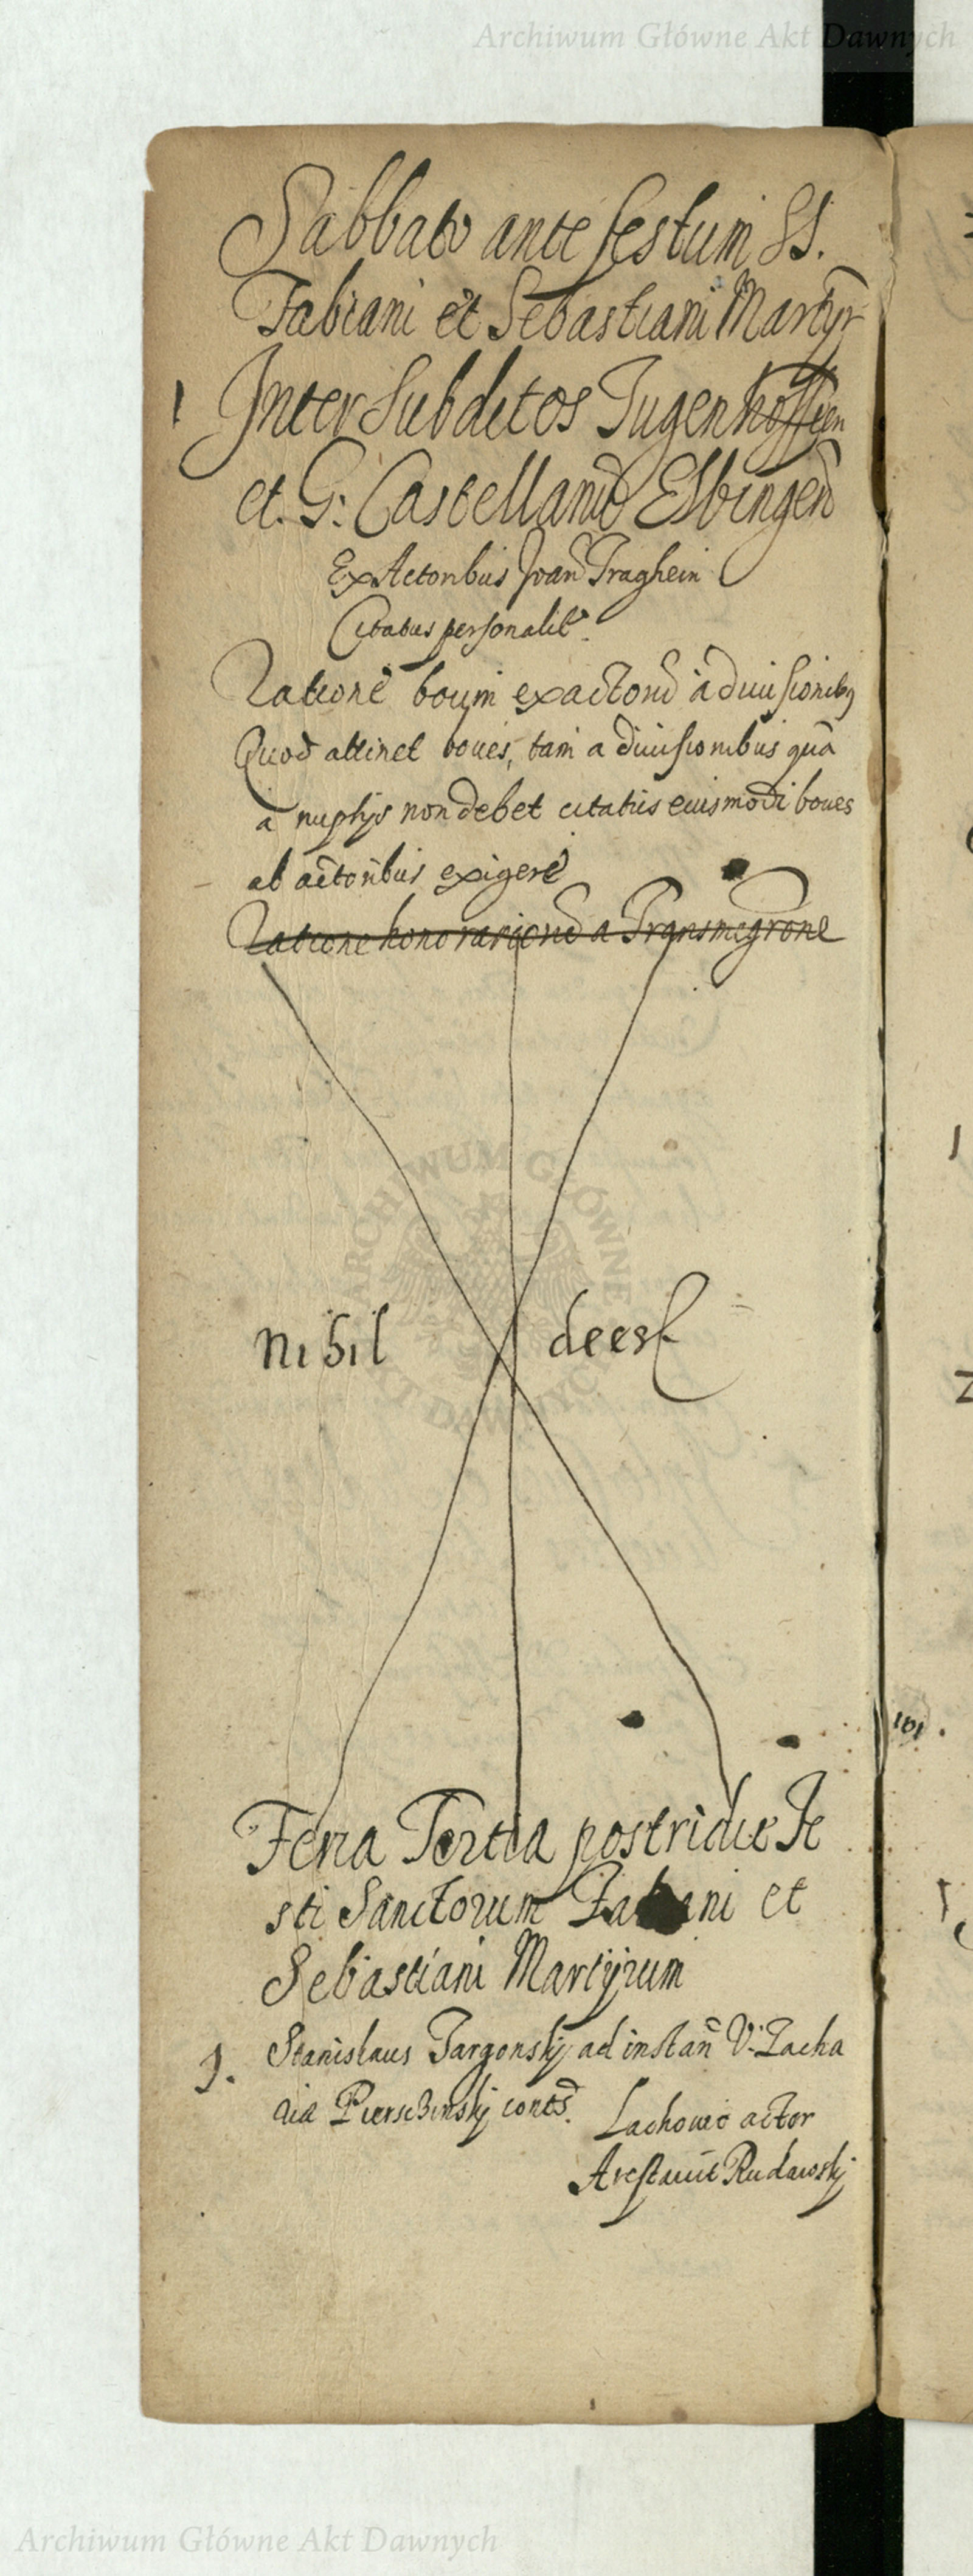 Archiwum Główne Akt Dawnych
Sabbato ante festum SS.
Fabiani et Sebastiani Martyr
1 Inter Subditos Tugenhoffien
et G: Castellanu Elbingen
Ex Actoribus Joan Traghein
Citatus personalit.
Ratione boum exactoru a diuisionibus
Quod attinet boues, tam a diuisionibus qua
a nuptijs non debet citatus euismodi boues
ab actoribus exigere
Ratione honorariorud a Transmigrone
nihil deest
Feria Tertia postridie Fe
sti Sanctorum Fabiani et
Sebastiani Martyrum
1. Stanislaus Targonskj ad instan V: Zacha
ria Pierscinskj conts.
Lachouic actor
Arestauit Rudawskj
ARCHIWUM GŁÓWNE AKT DAWNYCH
Archiwum Główne Akt Dawnych